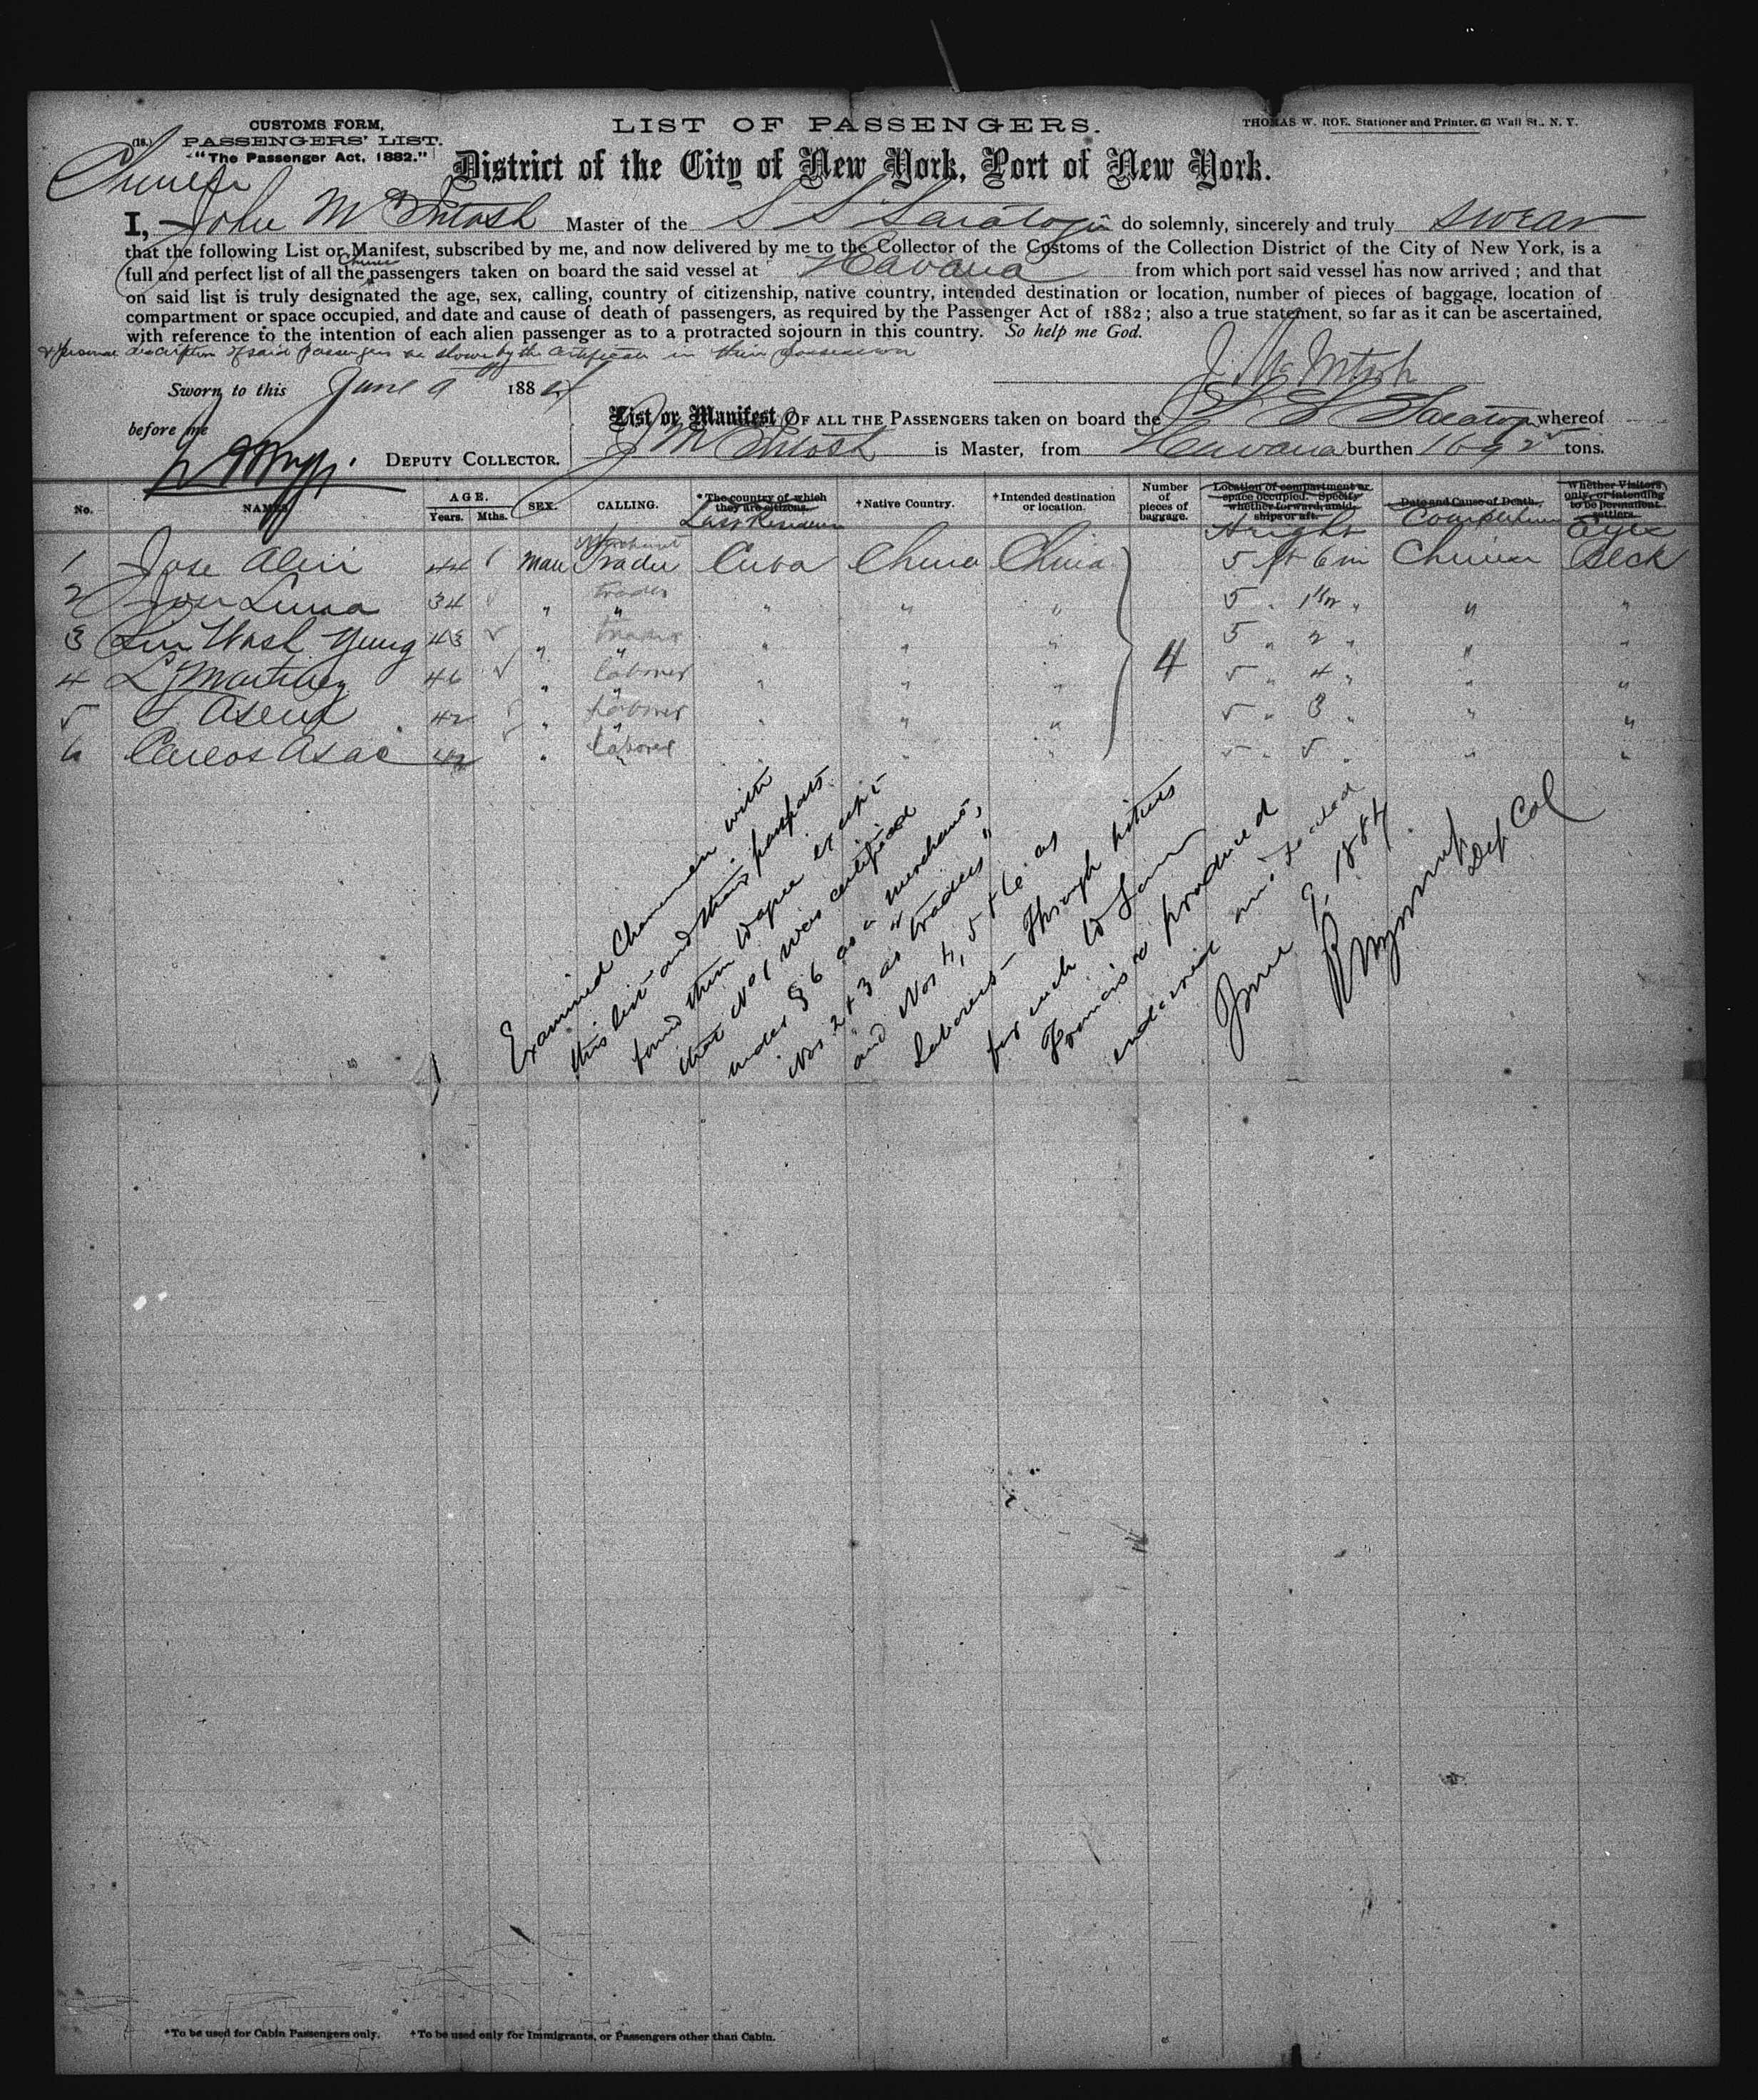 CUSTOMS FORM,
(18.) PASSENGERS' LIST.
"The Passenger Act, 1882."
Chinese
LIST OF PASSENGERS.
THOMAS W. ROE. Stationer and Printer. 63 Wall St., N. Y.
District of the City of New York, Port of New York.
I, John McIntosh Master of the S S Saratoga do solemnly, sincerely and truly swear
that the following List or Manifest, subscribed by me, and now delivered by me to the Collector of the Customs of the Collection District of the City of New York, is a
full and perfect list of all the Chinese passengers taken on board the said vessel at Havana from which port said vessel has now arrived; and that
on said list is truly designated the age, sex, calling, country of citizenship, native country, intended destination or location, number of pieces of baggage, location of
compartment or space occupied, and date and cause of death of passengers, as required by the Passenger Act of 1882; also a true statement, so far as it can be ascertained,
with reference to the intention of each alien passenger as to a protracted sojourn in this country. So help me God.
& personal description of said passengers as shown by the certificates in their possession
J. McIntosh
Sworn to this June 9th 1884
before me
DEPUTY COLLECTOR.
List or Manifest OF ALL THE PASSENGERS taken on board the S S Saratoga whereof
J McIntosh is Master, from Havana burthen 1692 tons.
No. NAMES. AGE. Years. Mths. SEX. CALLING. *The country of which they are citizens. †Native Country. †Intended destination or location. Number of pieces of baggage. Location of compartment or space occupied. Specify whether forward, amidships or aft. Date and Cause of Death. Whether Visitors only, or intending to be permanent settlers.
Last Residence Height Complexion Eyes
Merchant
1 Jose Aleri 44 Male Trader Cuba China China 5 ft 6 in Chinese Black
2 Jose Lima 34 " Trader " " " 5 " 1 1/2 " " "
3 Lin Wash Yung 43 " Trader " " " 5 " 2 " " "
4 L Martinez 46 " Laborer " " " 4 5 " 4 " " "
5 Asend 42 " Laborer " " " 5 " 3 " " "
6 Carlos Asae 42 " Laborer " " 5 " 5 " " "
Examined Chinamen with
this list and their passports
found them to agree except
that No 1 was certified
under § 6 as a "merchant,"
Nos. 2 & 3 as "traders"
and Nos 4, 5 & 6 as
laborers – Through tickets
for each to San
Francisco produced
endorsed and sealed
June 9, 1884
Dep. Col
*To be used for Cabin Passengers only. †To be used only for Immigrants, or Passengers other than Cabin.